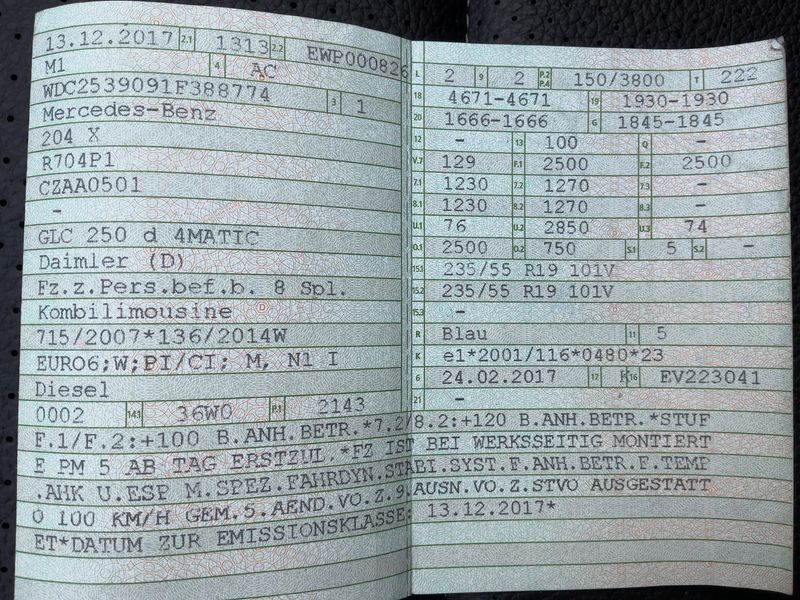 13.12.2017 2.1 1313 2.2 EWP000826
M1 4 AC
WDC2539091F388774 3 1
Mercedes-Benz
204 X
R704P1
CZAA0501
-
GLC 250 d 4MATIC
Daimler (D)
Fz.z.Pers.bef.b. 8 Spl.
Kombilimousine
715/2007*136/2014W
EURO6;W;PI/CI; M, N1 I
Diesel
0002 14.1 36W0 P.1 2143
L 2 9 2 P.2 P.4 150/3800 T 222
18 4671-4671 19 1930-1930
20 1666-1666 G 1845-1845
12 - 13 100 Q -
V.7 129 F.1 2500 F.2 2500
7.1 1230 7.2 1270 7.3 -
8.1 1230 8.2 1270 8.3 -
U.1 76 U.2 2850 U.3 74
O.1 2500 O.2 750 S.1 5 S.2 -
15.1 235/55 R19 101V
15.2 235/55 R19 101V
15.3 -
R Blau 11 5
K e1*2001/116*0480*23
6 24.02.2017 17 K 16 EV223041
21 -
F.1/F.2:+100 B.ANH.BETR.*7.2/8.2:+120 B.ANH.BETR.*STUF
E PM 5 AB TAG ERSTZUL.*FZ IST BEI WERKSSEITIG MONTIERT
.AHK U.ESP M.SPEZ.FAHRDYN.STABI.SYST.F.ANH.BETR.F.TEMP
O 100 KM/H GEM.5.AEND.VO.Z.9.AUSN.VO.Z.STVO AUSGESTATT
ET*DATUM ZUR EMISSIONSKLASSE: 13.12.2017*